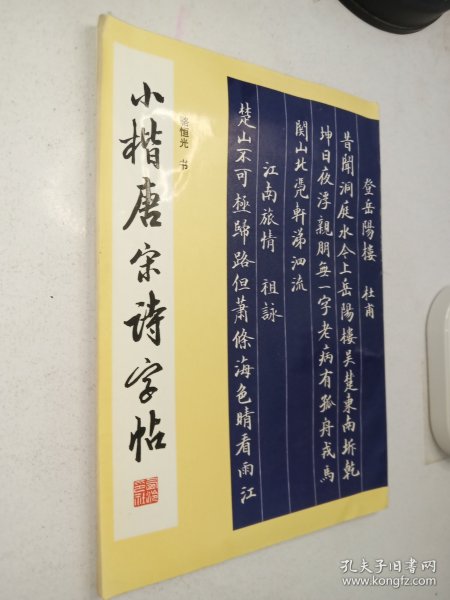 小楷唐宋詩字帖
骆恒光 书
登岳陽樓 杜甫
昔聞洞庭水今上岳陽樓吴楚東南坼乾
坤日夜浮親朋無一字老病有孤舟戎馬
関山北凭軒涕泗流
江南旅情 祖詠
楚山不可極歸路但蕭條海色晴看雨江
孔夫子旧书网
www.kongfz.com